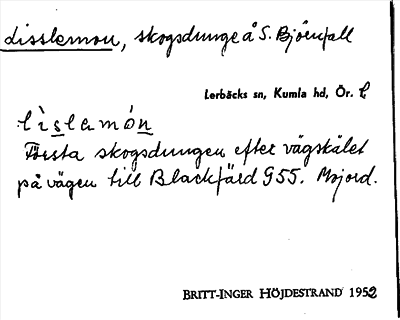 Lisslemon, skogsdunge å S. Björnfall
Lerbäcks sn, Kumla hd, Ör. l,
lìslemón
Första skogsdungen efter vägskälet
på vägen till Blackfärd G55. Mojord.
BRITT-INGER HÖJDESTRAND 1952